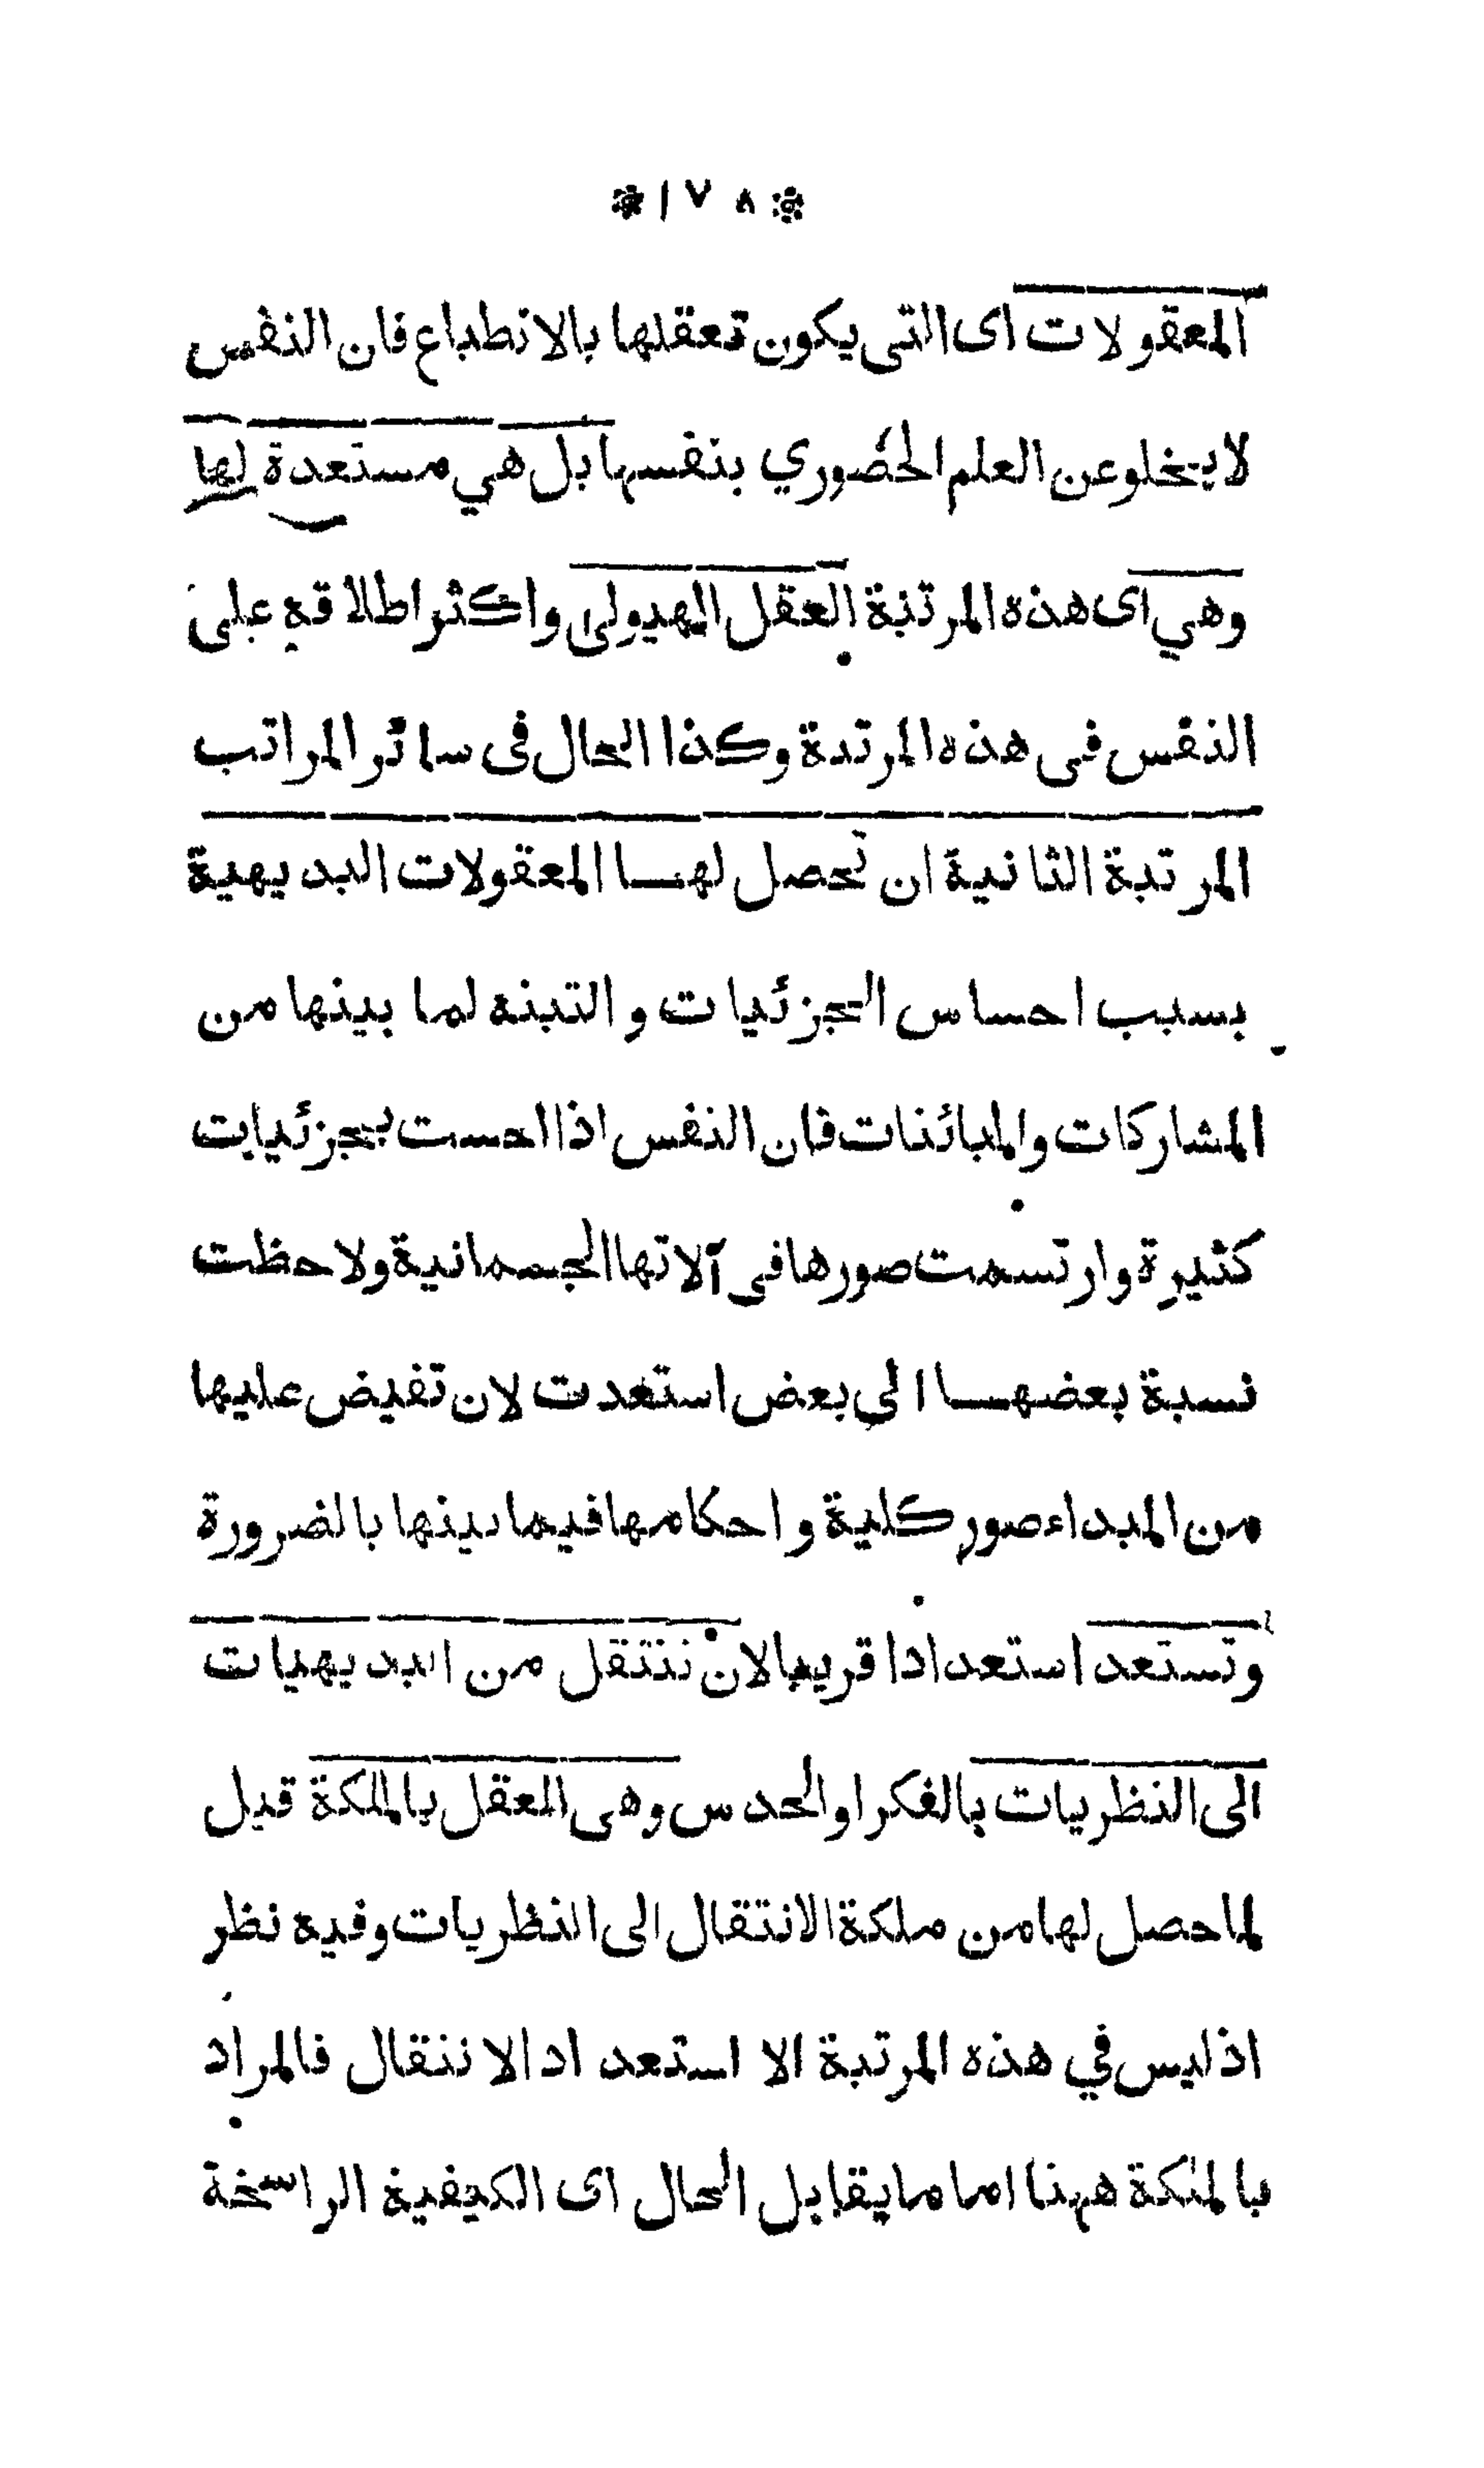 * ١٧٨ *
المعقولات اى التى يكون تعقلها بالانطباع فان النفس
لايخلو عن العلم الحضوري بنفسها بل هي مستعدة لها
وهي اى هذه المرتبة العقل الهيولى واكثر اطلاقه على
النفس فى هذه المرتبة وكذا الحال فى سائر المراتب
المرتبة الثانية ان تحصل لها المعقولات البديهية
بسبب احساس الجزئيات والتبنه لما بينها من
المشاركات والمبائنات فان النفس اذا احست بجزئيات
كثيرة وارتسمت صورها فى آلاتها الجسمانية ولاحظت
نسبة بعضها الى بعض استعدت لان تفيض عليها
من المبداء صور كلية واحكامها فيما بينها بالضرورة
وتستعد استعدادا قريبا لان ننتقل من البديهيات
الى النظريات بالفكر او الحدس وهى العقل بالملكة قيل
لما حصل لها من ملكة الانتقال الى النظريات وفيه نظر
اذ ليس في هذه المرتبة الا استعداد الا ننقال فالمراد
بالملكة ههنا اما ما يقابل الحال اى الكيفية الراسخة